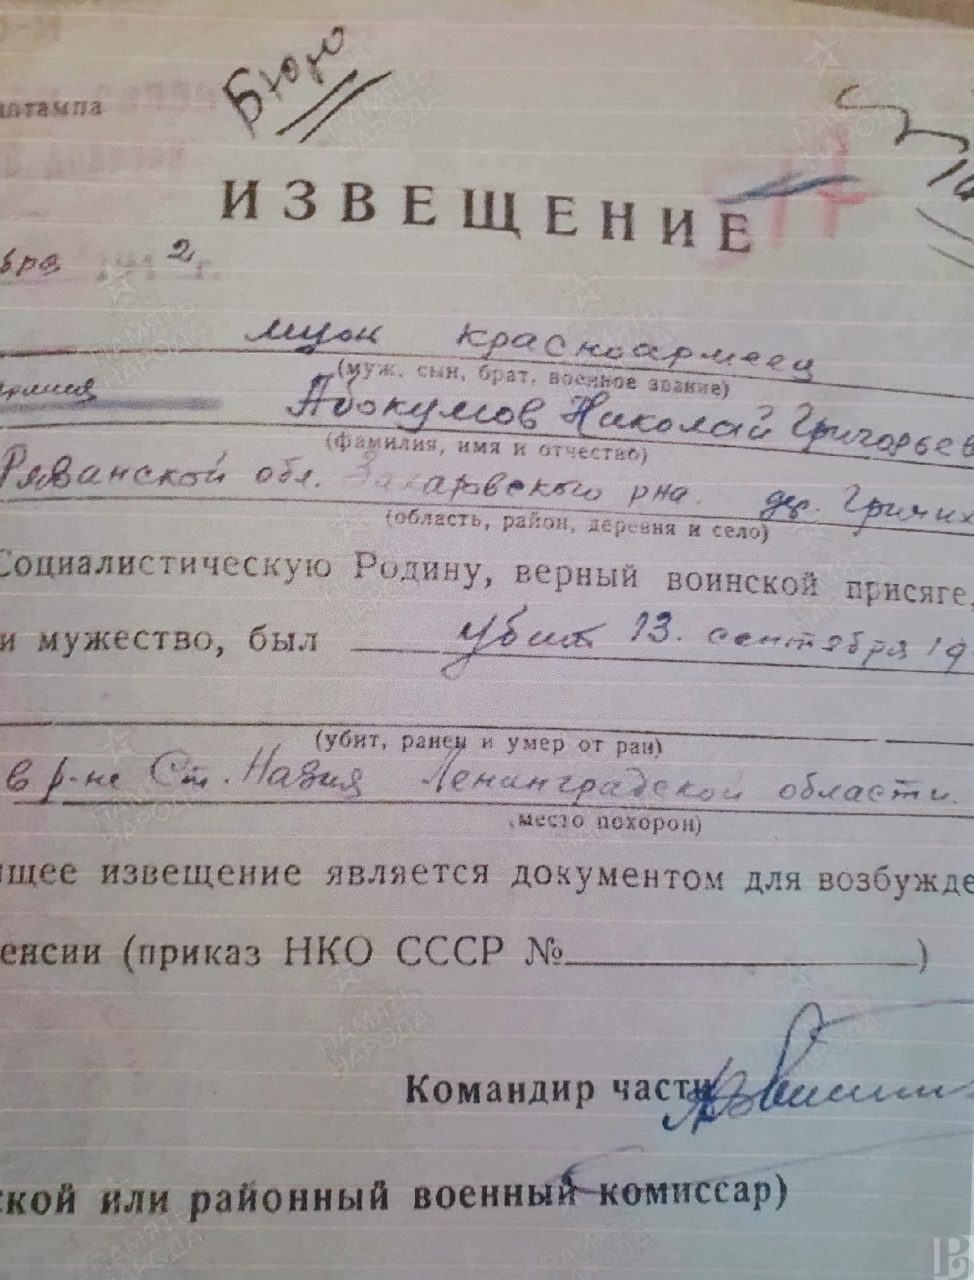 Бюро
штампа
ИЗВЕЩЕНИЕ
бря 2 г.
красноармеец
(муж, сын, брат, военное звание)
Абакумов Николай Григорьев
(фамилия, имя и отчество)
Рязанской обл. Захаровского рна. дер.
(область, район, деревня и село)
Социалистическую Родину, верный воинской присяге,
и мужество, был убит 13. сентября 19
(убит, ранен и умер от ран)
в р-не Ст. Назия Ленинградской области.
место похорон)
ящее извещение является документом для возбужде
енсии (приказ НКО СССР № )
Командир части
ской или районный военный комиссар)
ПАМЯТЬ НАРОДА